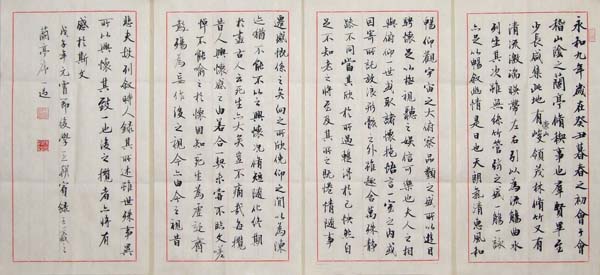 永和九年歲在癸丑暮春之初會于會
稽山陰之蘭亭脩禊事也羣賢畢至
少長咸集此地有崇山峻領茂林脩竹又有
清流激湍暎帶左右引以為流觴曲水
列坐其次雖無絲竹管弦之盛一觴一詠
亦足以暢敘幽情是日也天朗氣清惠風和
暢仰觀宇宙之大俯察品類之盛所以遊目
騁懷足以極視聽之娛信可樂也夫人之相
與俯仰一世或取諸懷抱悟言一室之內或
因寄所託放浪形骸之外雖趣舍萬殊靜
躁不同當其欣於所遇蹔得於己怏然自
足不知老之將至及其所之既惓情隨事
遷感慨係之矣向之所欣俛仰之間以為陳
迹猶不能不以之興懷況脩短隨化終期
於盡古人云死生亦大矣豈不痛哉每攬
昔人興感之由若合一契未嘗不臨文嗟
悼不能喻之於懷固知死生為虛誕齊
彭殤為妄作後之視今亦由今之視昔
悲夫故列敘時人錄其所述雖世殊事異
所以興懷其致一也後之攬者亦將有
感於斯文
戊子年元宵節後學
蘭亭序